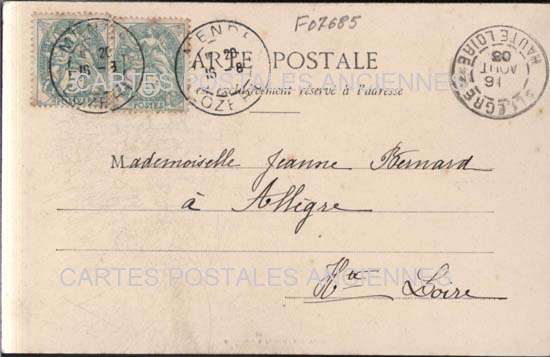 F07685
MENDE
LOZERE
CARTE POSTALE
ALLEGRE
HAUTE LOIRE
16
AOUT
03
5
5
POSTES
est exclusivement réservé à l'adresse
CARTES POSTALES ANCIENNES
Mademoiselle Jeanne Bernard
à Allègre
CARTES POSTALES ANCIENNES
Hte Loire